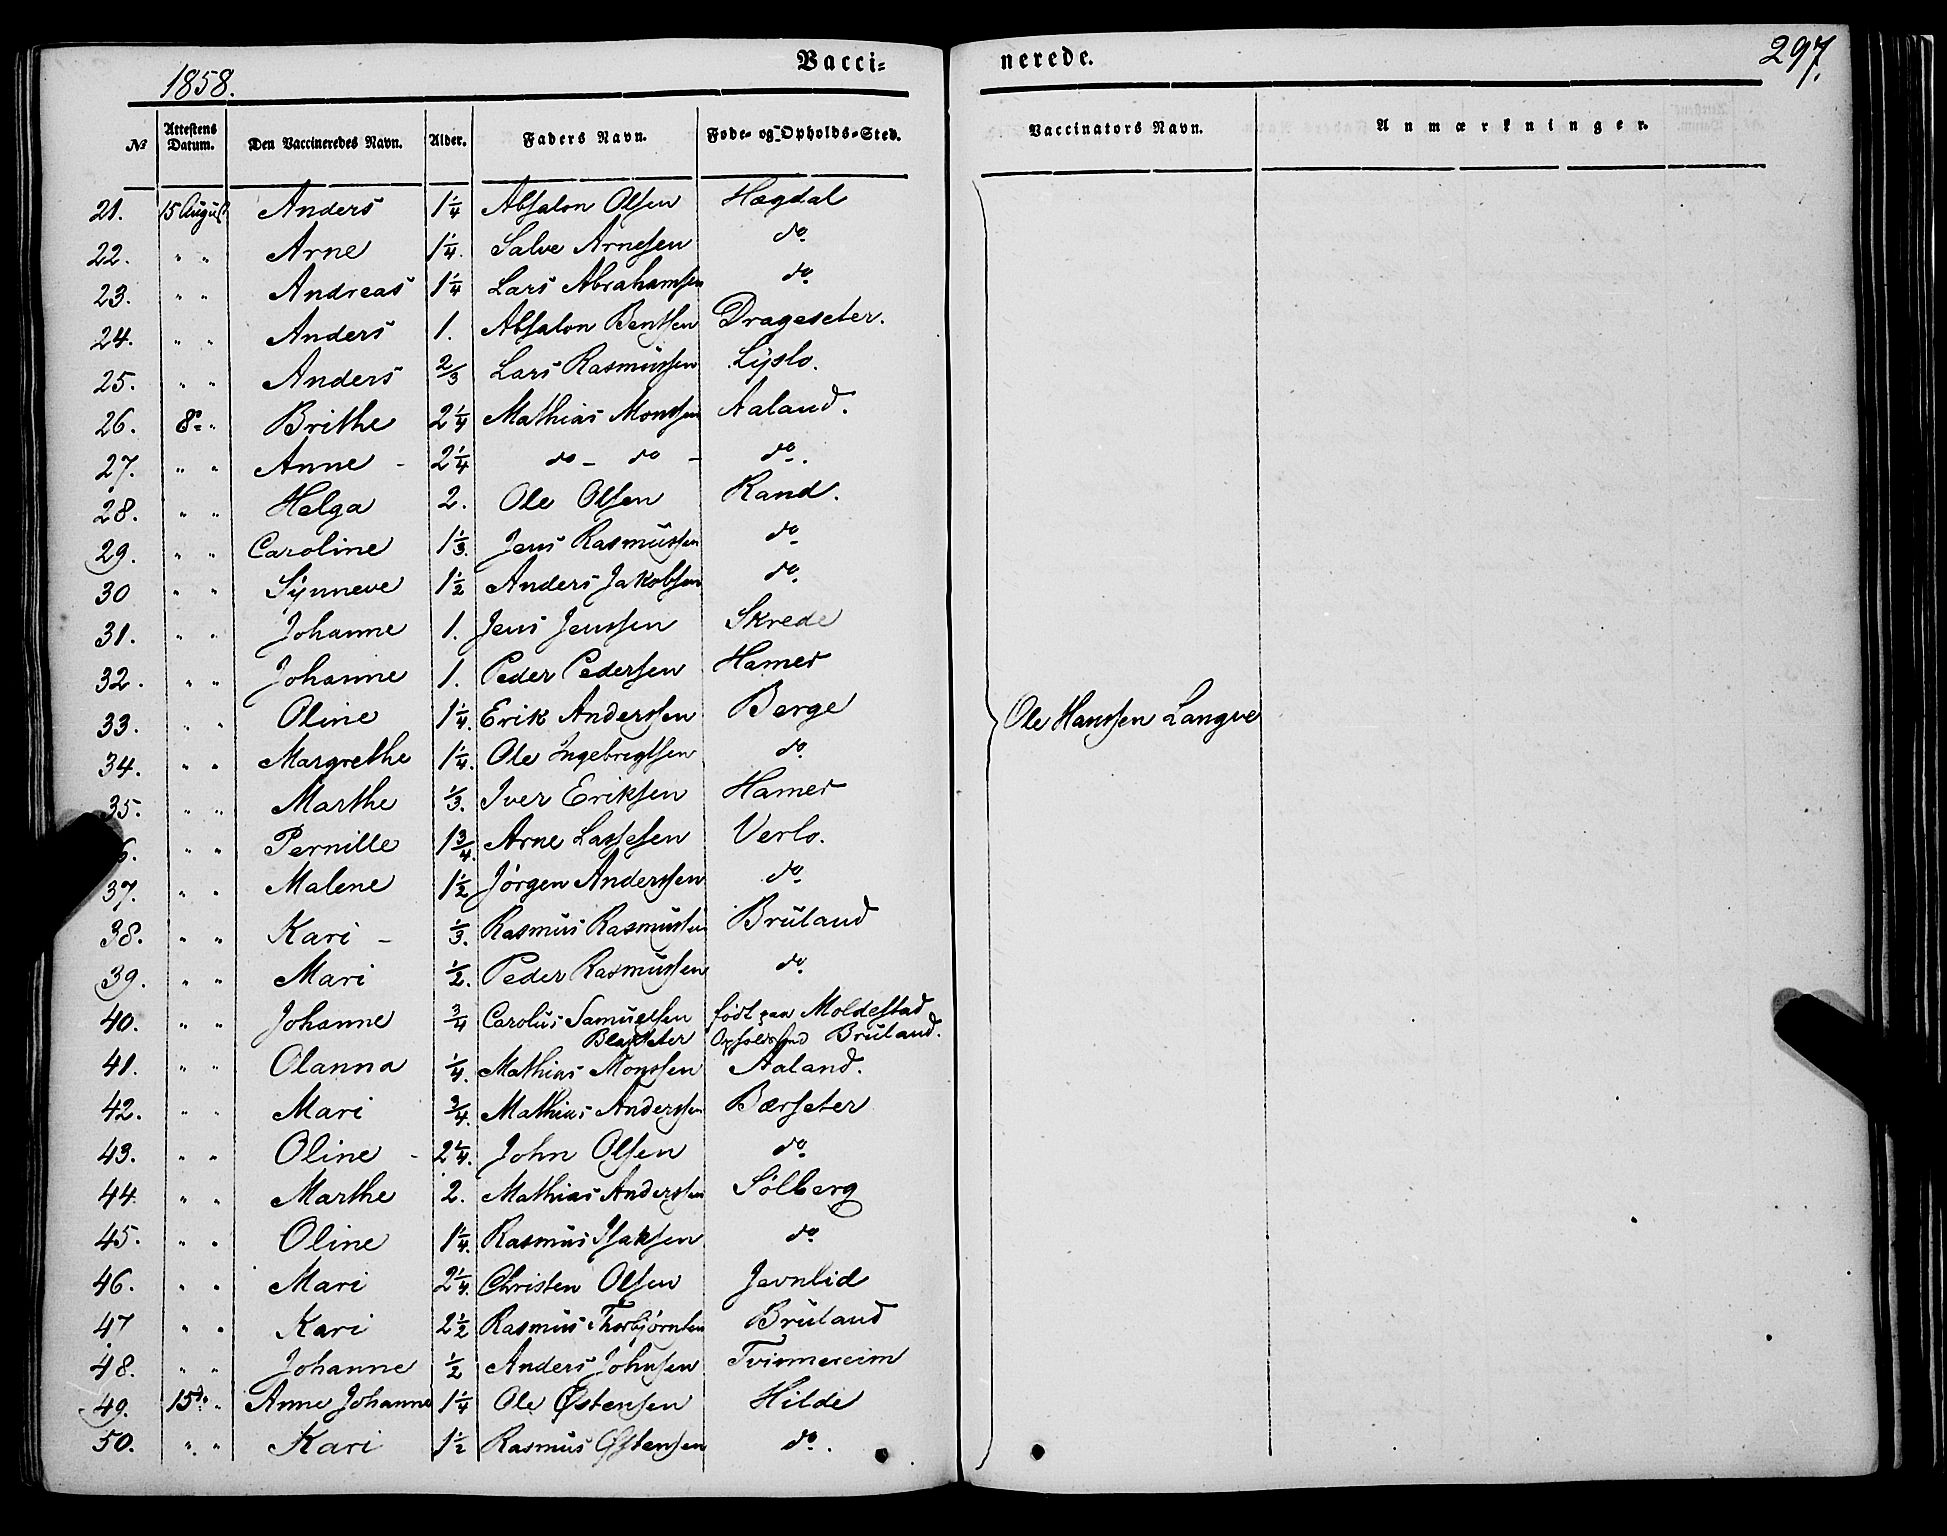 1858.
Vacci-
nerede.
297.
No
Attestens Datum.
Den Vaccineredes Navn.
Alder.
Faders Navn.
Føde- og Opholds-Sted.
Vaccinators Navn.
Anmærkninger.
21. 15 August Anders 1 1/4 Absalon Olsen Hægdal
22. " " Arne 1 1/4. Salve Arnesen do
23. " " Andreas 1 1/4 Lars Abrahamsen do
24. " " Anders 1. Absalon Bentsen Drageseter.
25. " " Anders 2/3 Lars Rasmussen Lyslo.
26. 8de " Brithe 2 1/4 Mathias Monssen Aaland.
27. " " Anne - 2 1/4 do - do - do.
28. " " Helga 2. Ole Olsen Rand.
29. " " Caroline 1 1/3. Jens Rasmussen do
30 " " Synneve 1 1/2 Anders Jakobsen do
31. " " Johanne 1. Jens Jenssen Skrede
32. " " Johanne 1. Peder Pedersen Hamer
33. " " Oline 1 1/4. Erik Anderssen Berge
Ole Hanssen Langve
34. " " Margrethe 1 1/4. Ole Ingebrigtsen do
35. " " Marthe 1/3. Iver Eriksen Hamer
6. " " Pernille 1 3/4. Arne Lassesen Verlo.
37. " " Malene 1 1/2 Jørgen Anderssen do
38. " " Kari - 1/3. Rasmus Rasmussen Bruland
39. " " Mari 1/2. Peder Rasmussen do
40. " " Johanne 3/4 Carolus Samuelsen født paa Moldestad
Opholdssted Bruland.
41. " " Olanna 1/4. Mathias Monssen Aaland.
42. " " Mari 3/4. Mathias Anderssen Bærseter
43. " " Oline - 2 1/4. John Olsen do
44. " " Marthe 2. Mathias Anderssen Sølberg
45. " " Oline 1 1/4. Rasmus Isaksen do
46. " " Mari 2 1/4. Christen Olsen Jevnlid
47 " " Kari 2 1/2 Rasmus Thorbjørnsen Bruland
48. " " Johanne 1/2 Anders Johnsen Tvinnereim
49. 15de " Anne Johanne 1 1/4 Ole Østensen Hilde
50. " " Kari 1 1/2 Rasmus Østensen do.